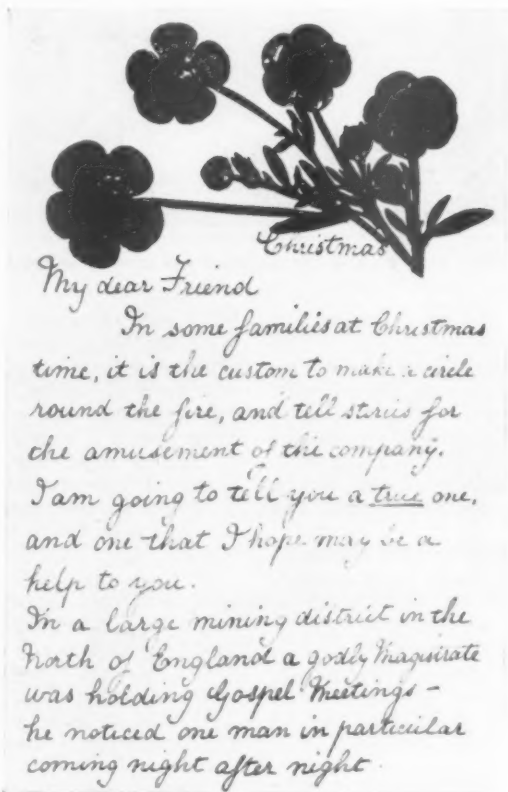 Christmas
My dear Friend
In some families at Christmas
time, it is the custom to make a circle
round the fire, and tell stories for
the amusement of the company.
I am going to tell you a true one,
and one that I hope may be a
help to you.
In a large mining district in the
North of England a godly Magistrate
was holding Gospel Meetings –
he noticed one man in particular
coming night after night.